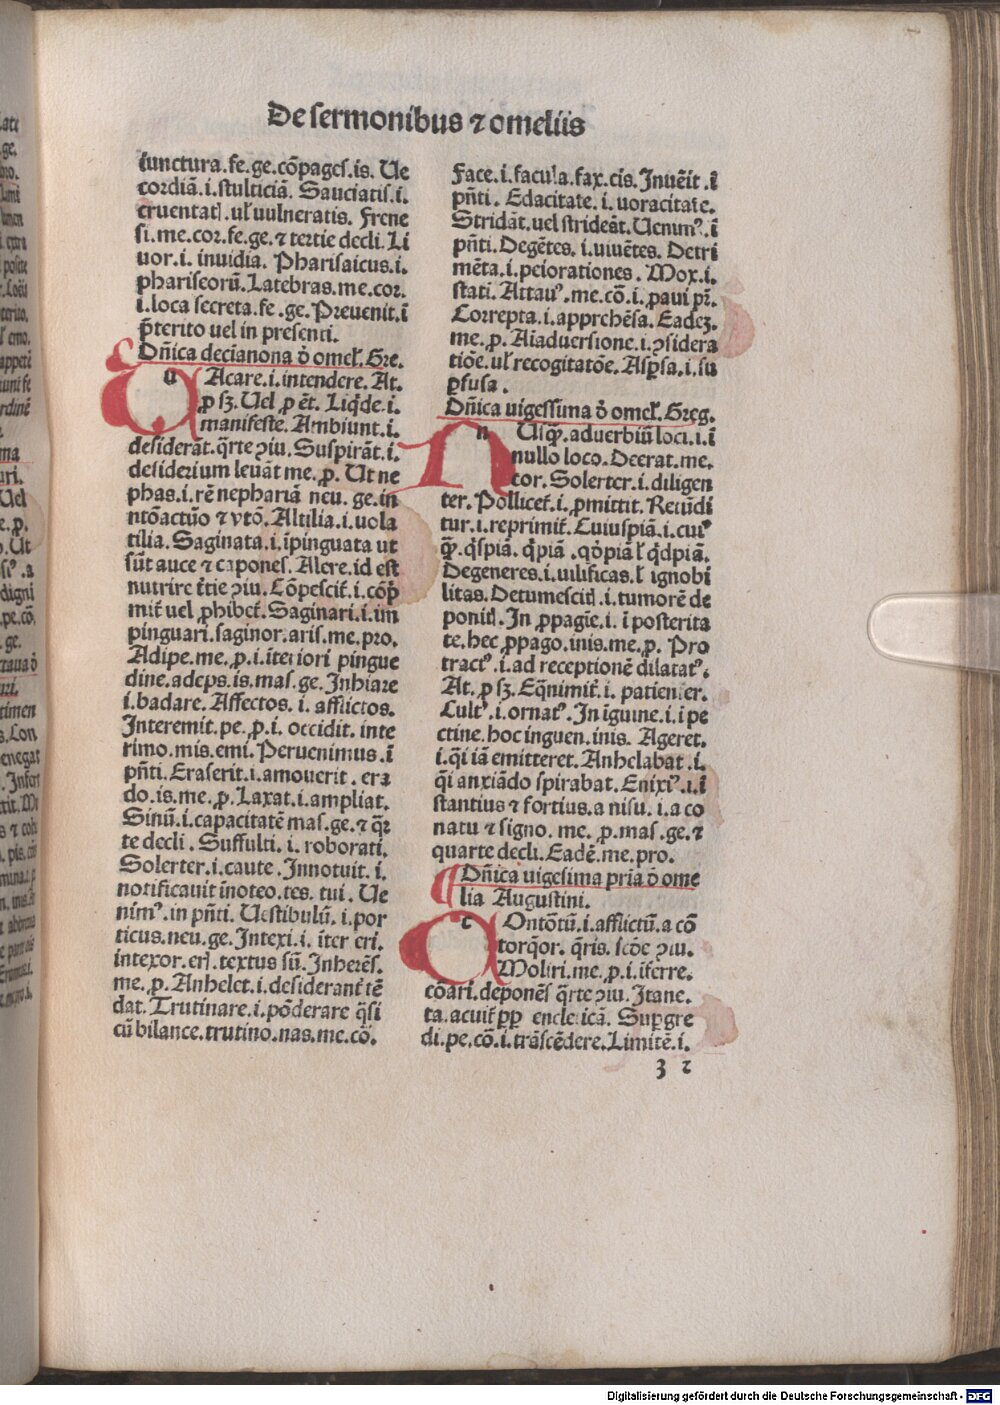 De sermonibus ⁊ omeliis
iunctura.fe.ge.cōpages.is. Ue
cordiā.i.stulticiā. Sauciatis.i.
cruentatꝭ.ul̄ uulneratis. Frene
si.me.cor.fe.ge.⁊ tertie decli.Li
uor.i. inuidia. Pharisaicus.i.
phariseorū.Latebras.me.cor.
i.loca secreta.fe.ge.Preuenit.ī
p̄terito uel in presenti.
Dn̄ica decianona ō omel̄. Gre.
u Acare.i.intendere. At.
ꝓ sꝫ. Uel ꝓ ēt. Liq̇de.i.
manifeste. Ambiunt.i.
desiderāt.q̄rte ꝯiu. Suspirāt.i.
desiderium leuāt me.ꝓ. Ut ne
phas.i.rē nephariā neu. ge.in
ntōactūo ⁊ vtō. Altilia.i.uola
tilia. Saginata.i.īpinguata ut
sūt auce ⁊ capones. Alere.id est
nutrire t̄tie ꝯiu. Cōpescit̄.i.cōp̄
mit̄ uel ꝓhibet̄. Saginari.i.im
pinguari.saginor.aris.me.pro.
Adipe.me.ꝓ.i.īteriori pingue
dine.adeps.is.mas.ge.Inhiare
i.badare. Affectos.i. afflictos.
Interemit.pe.ꝓ.i. occidit. inte
rimo.mis.emi. Peruenimus.ī
pn̄ti. Eraserit.i.amouerit.era
do.is.me.ꝓ.Laxat.i.ampliat.
Sinū.i.capacitatē mas.ge.⁊ q̄r
te decli. Suffulti.i. roborati.
Solerter.i.caute. Innotuit.i.
notificauit inoteo.tes.tui. Ue
nimꝰ.in pn̄ti. Uestibulū.i.por
ticus.neu.ge.Intexi.i. īter eri.
intexor.eris.textus sū.Inherēs.
me.ꝓ.Anhelet.i.desiderant̄ tē
dat.Trutinare.i.pōderare q̇si
cū bilance.trutino.nas.me.cō.
Face.i.facula.fax.cis.Inuēit.ī
pn̄ti. Edacitate.i.uoracitate.
Stridāt.uel strideāt.Uenimꝰ.ī
pn̄ti.Degētes.i.uiuētes.Detri
mēta.i.peiorationes. Mox.i.
stati. Attauꝰ.me.cō.i.paui pr̄.
Correpta.i.apprehēsa. Eadeꝫ.
me.ꝓ. Aīaduersione.i.ꝯsidera
tiōe.ul̄ recogitatōe. Asꝑsa.i.su
ꝑfusa.
Dn̄ica uigessima ō omel̄. Greg.
n Uſqꝫ.aduerbiū loci.i.ī
nullo loco. Deerat.me.
cor. Solerter.i.diligen
ter. Pollicet̄.i.ꝓmittit. Retūdi
tur.i.reprimit̄. Cuiuspiā.i.cuiꝰ
q̄ꝫ.q̇spiā. q̇piā.qȯpiā l̄ q̇dpiā.
Degeneres.i.uilificas.l̄ ignobi
litas. Detumescit̄.i.tumorē de
ponit̄. In ꝓpagie.i. ī posterita
te.hec ꝓpago.inis.me.ꝓ. Pro
tractꝰ.i.ad receptionē dilatatꝰ.
At. ꝓ sꝫ. Eq̄nimit̄.i. patienter.
Cultꝰ.i.ornatꝰ. In īguine.i.ī pe
ctine.hoc inguen.inis. Ageret.
i.q̇i iā emitteret. Anhelabat.i.
q̇i anxiādo spirabat. Enixiꝰ.i.ī
stantius ⁊ fortius.a nisu.i.a co
natu ⁊ signo.me.ꝓ.mas.ge.⁊
quarte decli. Eadē.me.pro.
Dn̄ica uigesima pria ō ome
lia Augustini.
c Ontōtū.i.afflictū.a cō
torq̄or. q̄ris. scōe ꝯiu.
Moliri.me.ꝓ.i.īferre.
cōari.deponēs q̄rte ꝯiu. Itane.
ta.acuit̄ ꝓp̄ encleticā. Supgre
di.pe.cō.i.trāscēdere.Limitē.i.
3 2
Digitalisierung gefördert durch die Deutsche Forschungsgemeinschaft - DFG